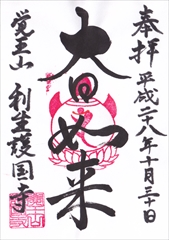 奉拝 平成二十八年十月三十日
大日如来
覚王山 利生護国寺